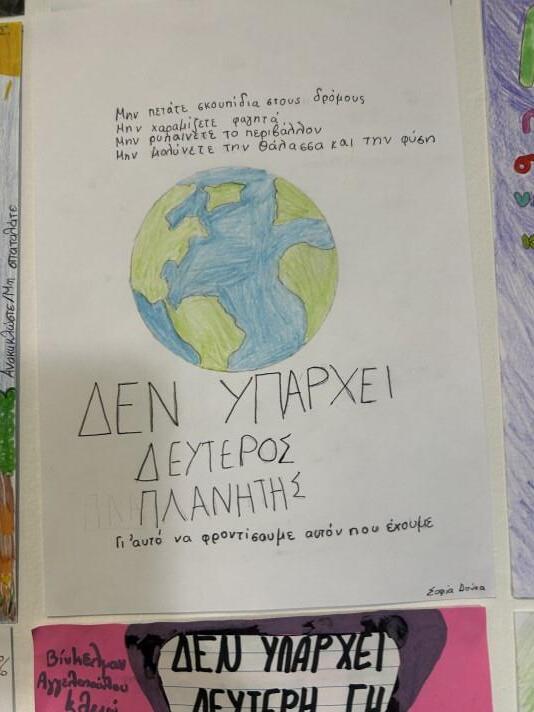 Μην πετάτε σκουπίδια στους δρόμους
Μην χαραμίζετε φαγητά
Μην ρυπαίνετε το περιβάλλον
Μην μολύνετε την θάλασσα και την φύση
ΔΕΝ ΥΠΑΡΧΕΙ
ΔΕΥΤΕΡΟΣ
ΠΛΑΝΗΤΗΣ
Γι'αυτό να φροντίσουμε αυτόν που έχουμε
Σοφία Δούκα
Ανακυκλώστε/Μη σπαταλάτε
Βίνκελμαν
Αγγελοπούλου
ΔΕΝ ΥΠΑΡΧΕΙ
ΔΕΥΤΕΡΗ ΓΗ